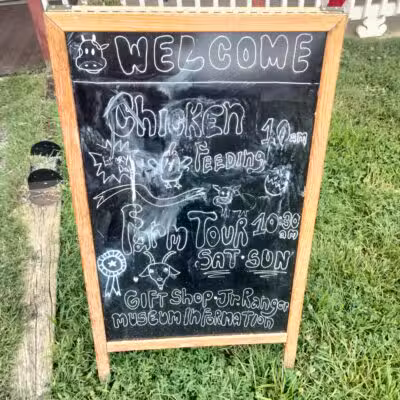 WELCOME
Chicken
10am
FEEDING
Farm Tour 10:30
am
SAT·SUN
Gift Shop·Jr. Ranger
Museum Information